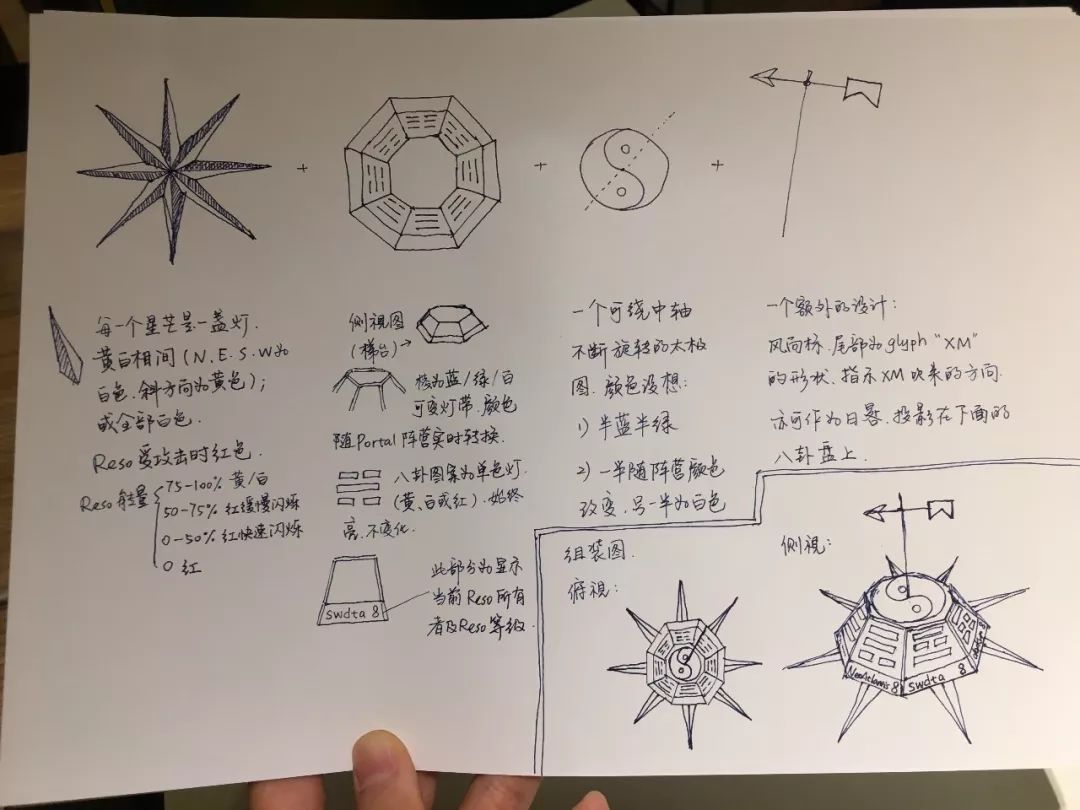 +
+
+
每一个星芒是一盏灯.
黄白相间(N.E.S.W为
白色.斜方向为黄色);
或全部白色.
Reso受攻击时红色.
Reso能量
75-100% 黄/白
50-75% 红缓慢闪烁
0-50% 红快速闪烁
0 红
侧視图
(梯台)→
棱为蓝/绿/白
可变灯带.颜色
随Portal阵营实时转换.
八卦图案为单色灯.
(黄、白或红).始终
亮.不变化.
swdta 8
此部分为显示
当前Reso所有
者及Reso等级.
一个可绕中轴
不断旋转的太极
图.颜色设想:
1) 半蓝半绿
2) 一半随阵营颜色
改变,另一半为白色
一个额外的设计:
风向标.尾部为glyph "XM"
的形状.指示XM吹来的方向.
亦可作为日晷.投影在下面的
八卦盘上.
组装图.
俯視:
侧視:
NeoAtlantis 8
swdta 8